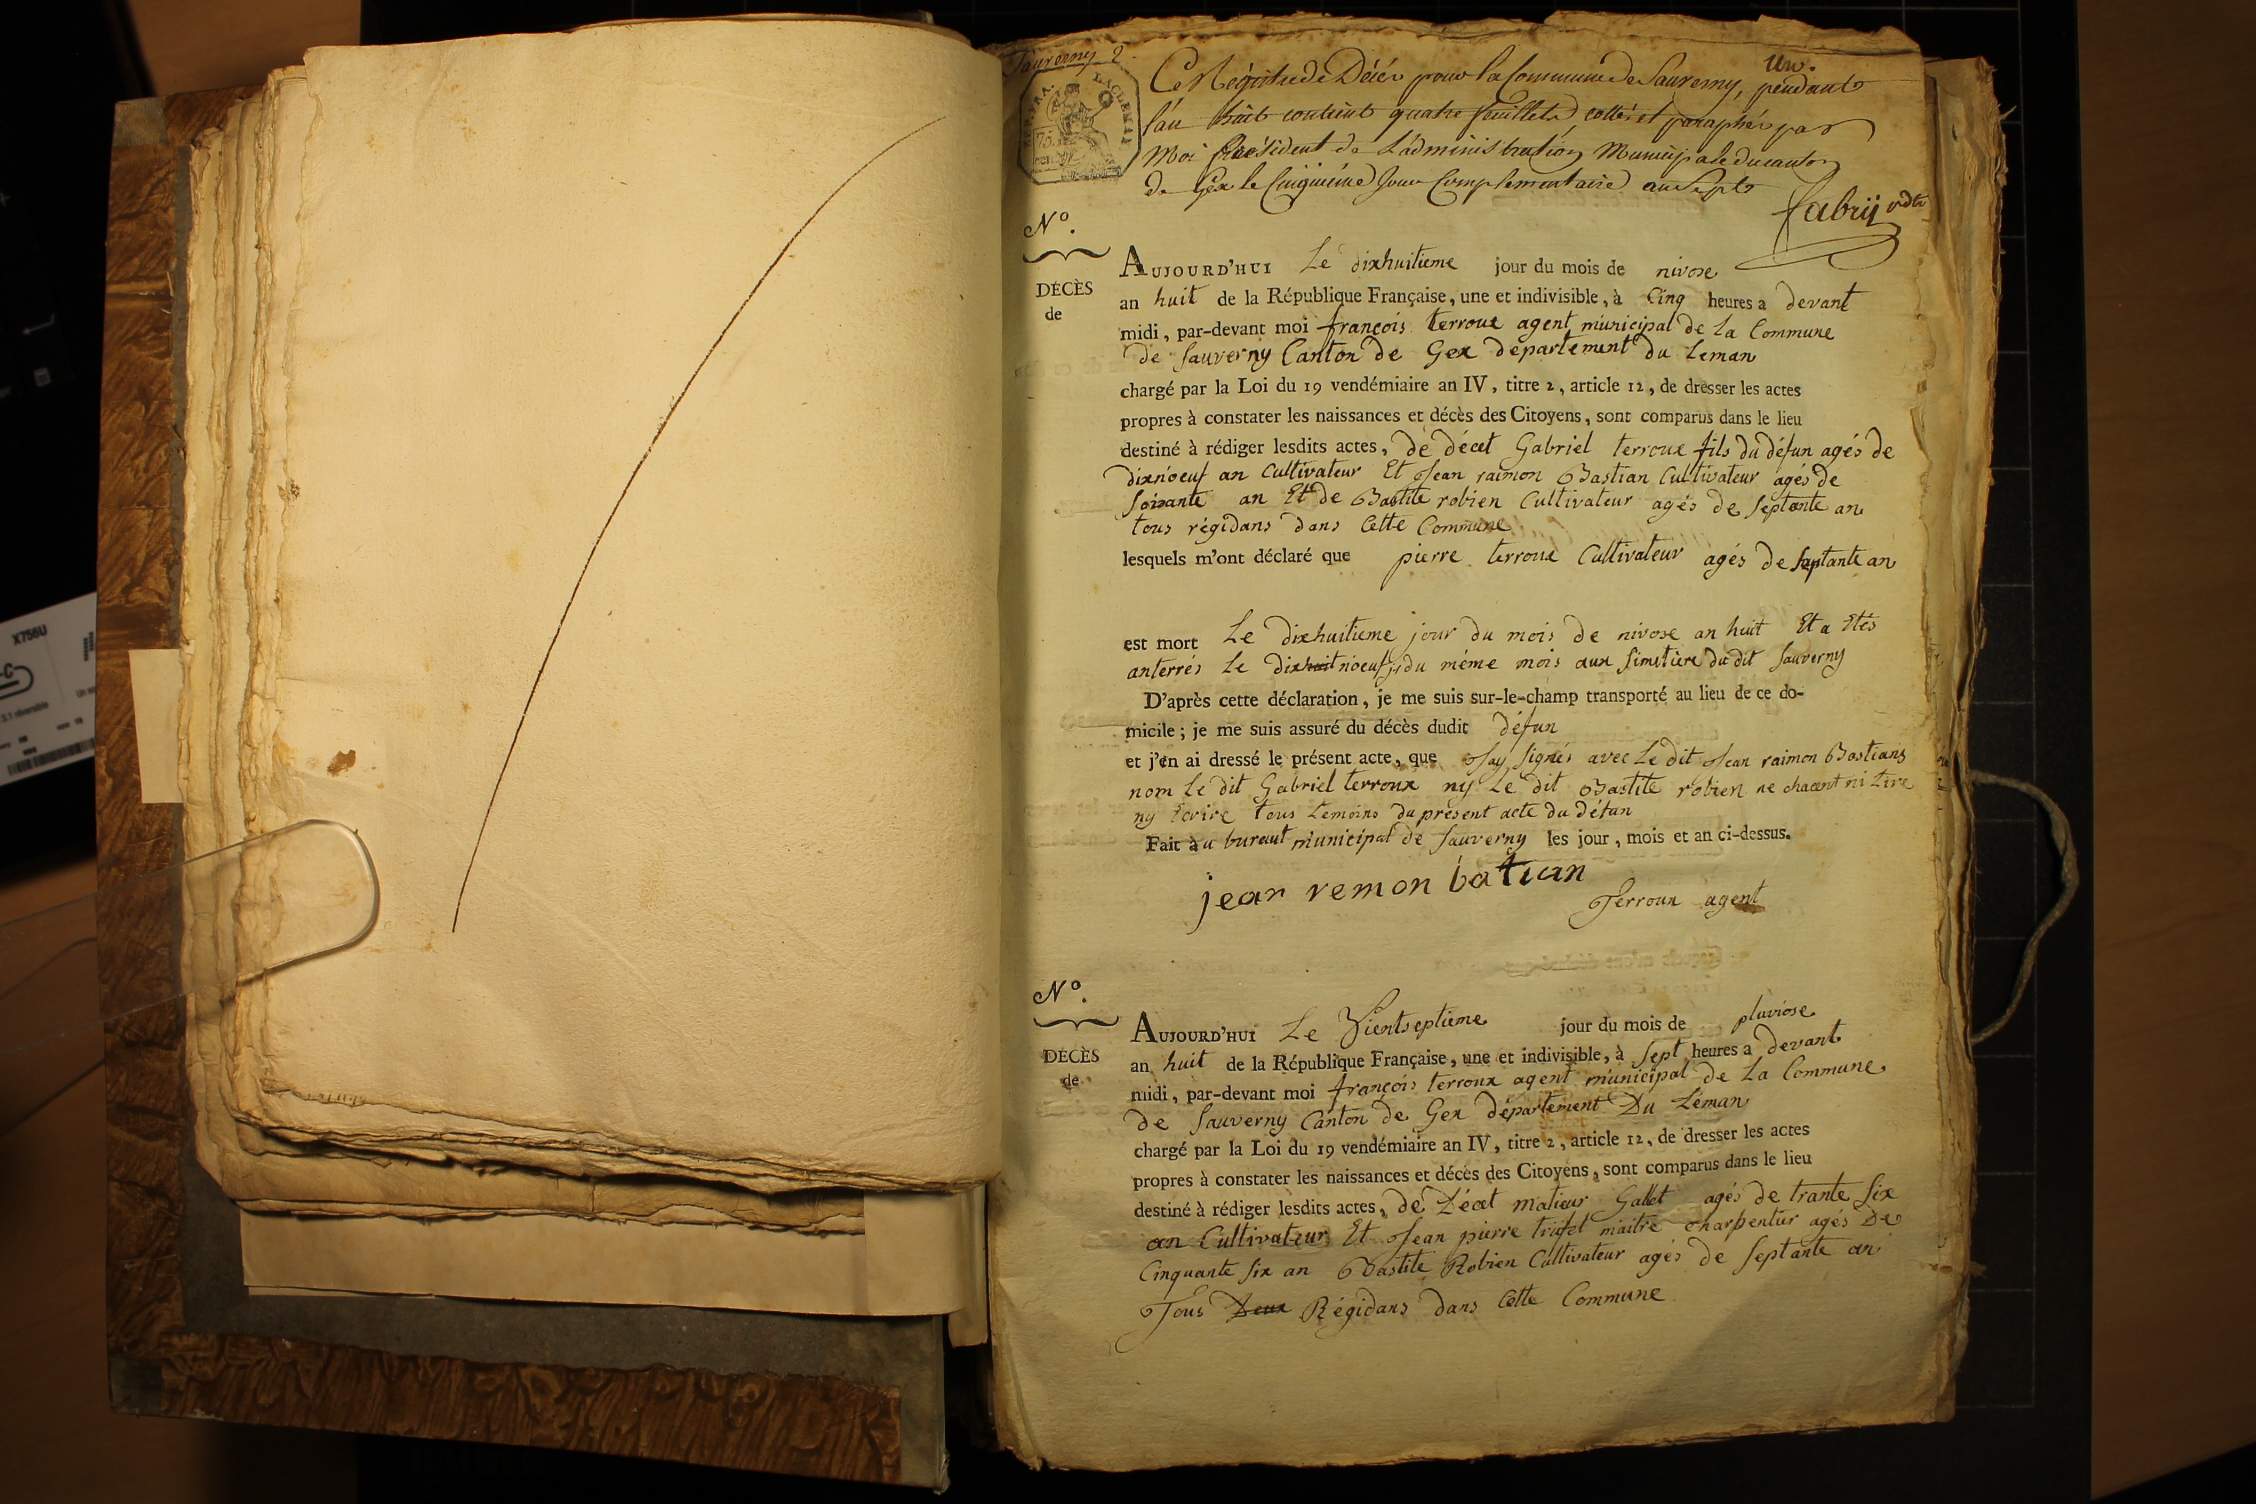 Sauverny 2
Un.
Ce Registre de Décés pour la Commune de Sauverny, pendant
l'an huit contient quatre feuillets cottés et paraphés par
Moi président de L'administration Municipale du canton
de Gex le Cinquième Jour Complementaire an Sept
Fabry
N°.
DÉCÈS
de
AUJOURD'HUI Le dixhuitieme jour du mois de nivose
an huit de la République Française, une et indivisible, à Cinq heures a devant
midi, par-devant moi françois terroux agent municipal de La Commune
de Sauverny Canton de Gex departement du Leman
chargé par la Loi du 19 vendémiaire an IV, titre 2, article 12, de dresser les actes
propres à constater les naissances et décès des Citoyens, sont comparus dans le lieu
destiné à rédiger lesdits actes, de décet Gabriel terroux fils du défun agés de
dixnoeuf an Cultivateur Et Jean raimon Bastian Cultivateur agés de
Soixante an Et de Bastite robien Cultivateur agés de Septante an
tous régidans dans Cette Commune
lesquels m'ont déclaré que pierre terroux Cultivateur agés de Septante an
est mort Le dixhuitieme jour du mois de nivose an huit Et a Etés
anterrés Le dixhuit noeuf du méme mois aux Simetiere du dit Sauverny
D'après cette déclaration, je me suis sur-le-champ transporté au lieu de ce do-
micile; je me suis assuré du décès dudit défun
et j'en ai dressé le présent acte, que Jay Signés avec Le dit Jean raimon Bastians
nom Le dit Gabriel terroux ny Le dit Bastite robien ne chacent ni Lire
ny Ecrire tous temoins du présent acte du défun
Fait au buraut municipal de Sauverny les jour, mois et an ci-dessus.
jean remon batian
Terroux agent
N°.
DÉCÈS
de
AUJOURD'HUI Le Vientseptieme jour du mois de pluviose
an huit de la République Française, une et indivisible, à Sept heures a devant
midi, par-devant moi françois terroux agent municipal de La Commune
de Sauverny Canton de Gex département Du Léman
chargé par la Loi du 19 vendémiaire an IV, titre 2, article 12, de dresser les actes
propres à constater les naissances et décès des Citoyens, sont comparus dans le lieu
destiné à rédiger lesdits actes, de Décet matieur Gallet agés de trante Six
an Cultivateur Et Jean pierre maitre charpentier agés De
Cinquante Six an Bastite Robien Cultivateur agés de Septante an
Tous Deux Régidans dans Cette Commune
X756U